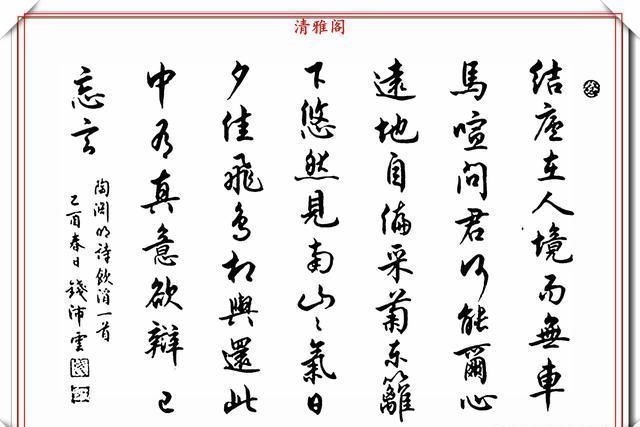 清雅阁
結廬在人境而無車
馬喧問君何能爾心
遠地自偏采菊東籬
下悠然見南山〻氣日
夕佳飛鳥相與還此
中有真意欲辯已
忘言
陶渊明詩飲酒一首
乙酉春日錢沛雲